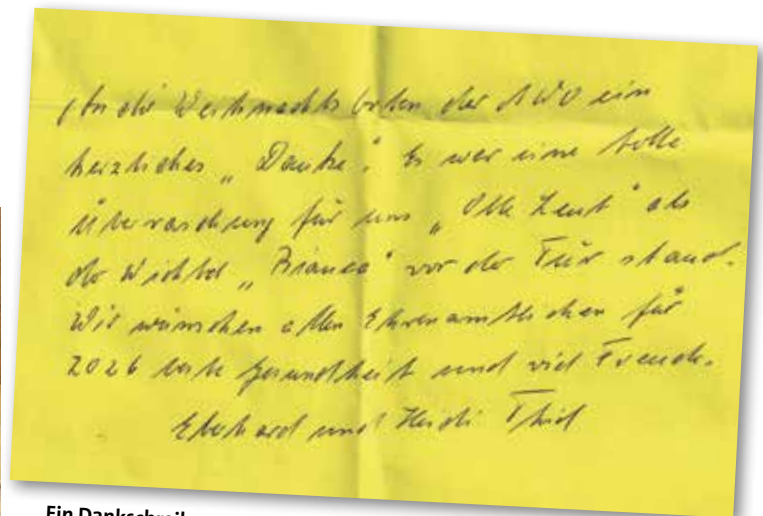 An die Weihnachtsboten der AWO ein
herzliches „Danke“. Es war eine tolle
Überraschung für uns „Olle Leut“ als
der Wichtel „Bianca“ vor der Tür stand.
Wir wünschen allen Ehrenamtlichen für
2026 beste Gesundheit und viel Freude.
Eberhard und Heidi
Ein Dankschreib